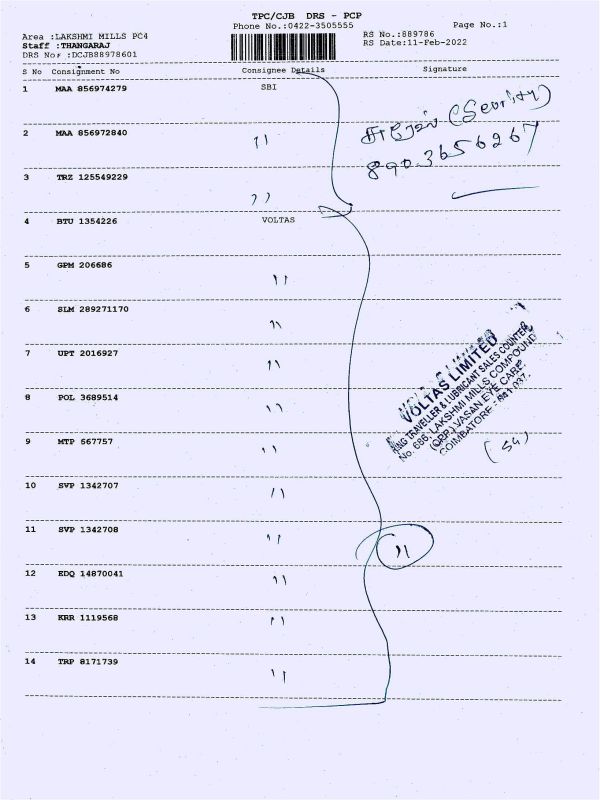 TPC/CJB DRS - PCP
Phone No.:0422-3505555
Page No.:1
Area :LAKSHMI MILLS PC4
RS No.:889786
Staff :THANGARAJ
RS Date:11-Feb-2022
DRS No# :DCJB88978601
S No Consignment No Consignee Details Signature
1 MAA 856974279 SBI
2 MAA 856972840 ''
3 TRZ 125549229 ''
(Security)
8903656267
4 BTU 1354226 VOLTAS
5 GPM 206686 ''
6 SLM 289271170 ''
7 UPT 2016927 ''
8 POL 3689514 ''
9 MTP 667757 ''
VOLTAS LIMITED
RING TRAVELLER & LUBRICANT SALES COUNTER
No. 686, LAKSHMI MILLS COMPOUND
(OPP.) VASAN EYE CARE,
COIMBATORE - 641 037.
(S4)
10 SVP 1342707 ''
11 SVP 1342708 '' ''
12 EDQ 14870041 ''
13 KRR 1119568 ''
14 TRP 8171739 ''